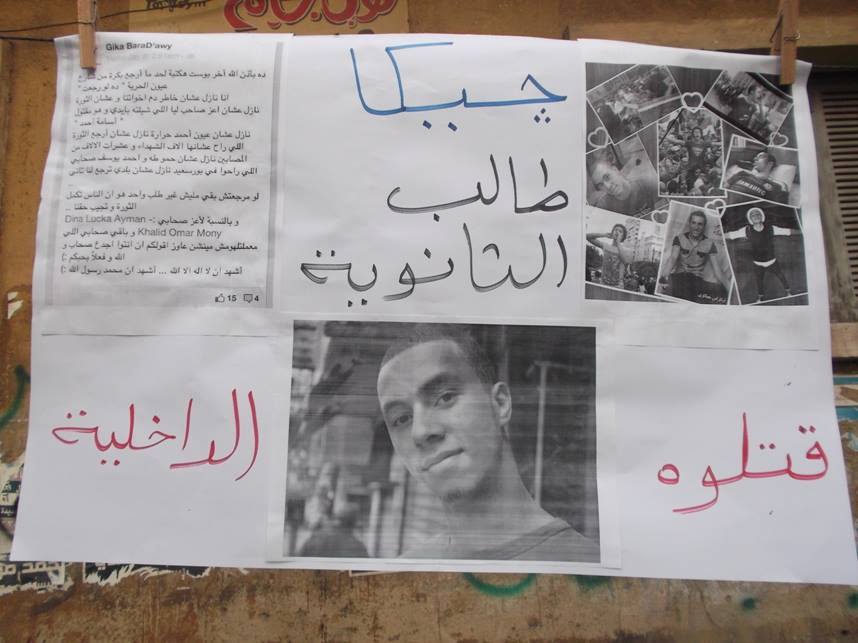 Gika BaraD'awy
ده بأذن الله آخر بوست هكتبة لحد ما أرجع بكرة من شارع
عيون الحرية " ده لو رجعت "
انا نازل عشان خاطر دم اخواتنا و عشان الثورة
نازل عشان اعز صاحب ليا اللي شيلته بايدي و هو مقتول
" أسامة أحمد "
نازل عشان عيون أحمد حرارة نازل عشان أرجع الثورة
اللي راح عشانها الاف الشهداء و عشرات الالاف من
المصابين نازل عشان حموطه و احمد يوسف صحابي
اللي راحوا في بورسعيد نازل عشان بلدي ترجع لنا تاني
...
لو مرجعتش بقي مليش غير طلب واحد هو ان الناس تكمل
الثورة و تجيب حقنا ..
و بالنسبة لأعز صحابي :- Dina Lucka Ayman
Khalid Omar Mony و باقي صحابي اللي
معملتلهومش مينشن عاوز اقولكم ان انتوا اجدع صحاب و
الله و فعلاً بحبكم :)
أشهد ان لا اله الا الله ... أشهد ان محمد رسول الله :)
15 4
جيكا
طالب
الثانوية
SAMSUNG
قتلوه
الداخلية